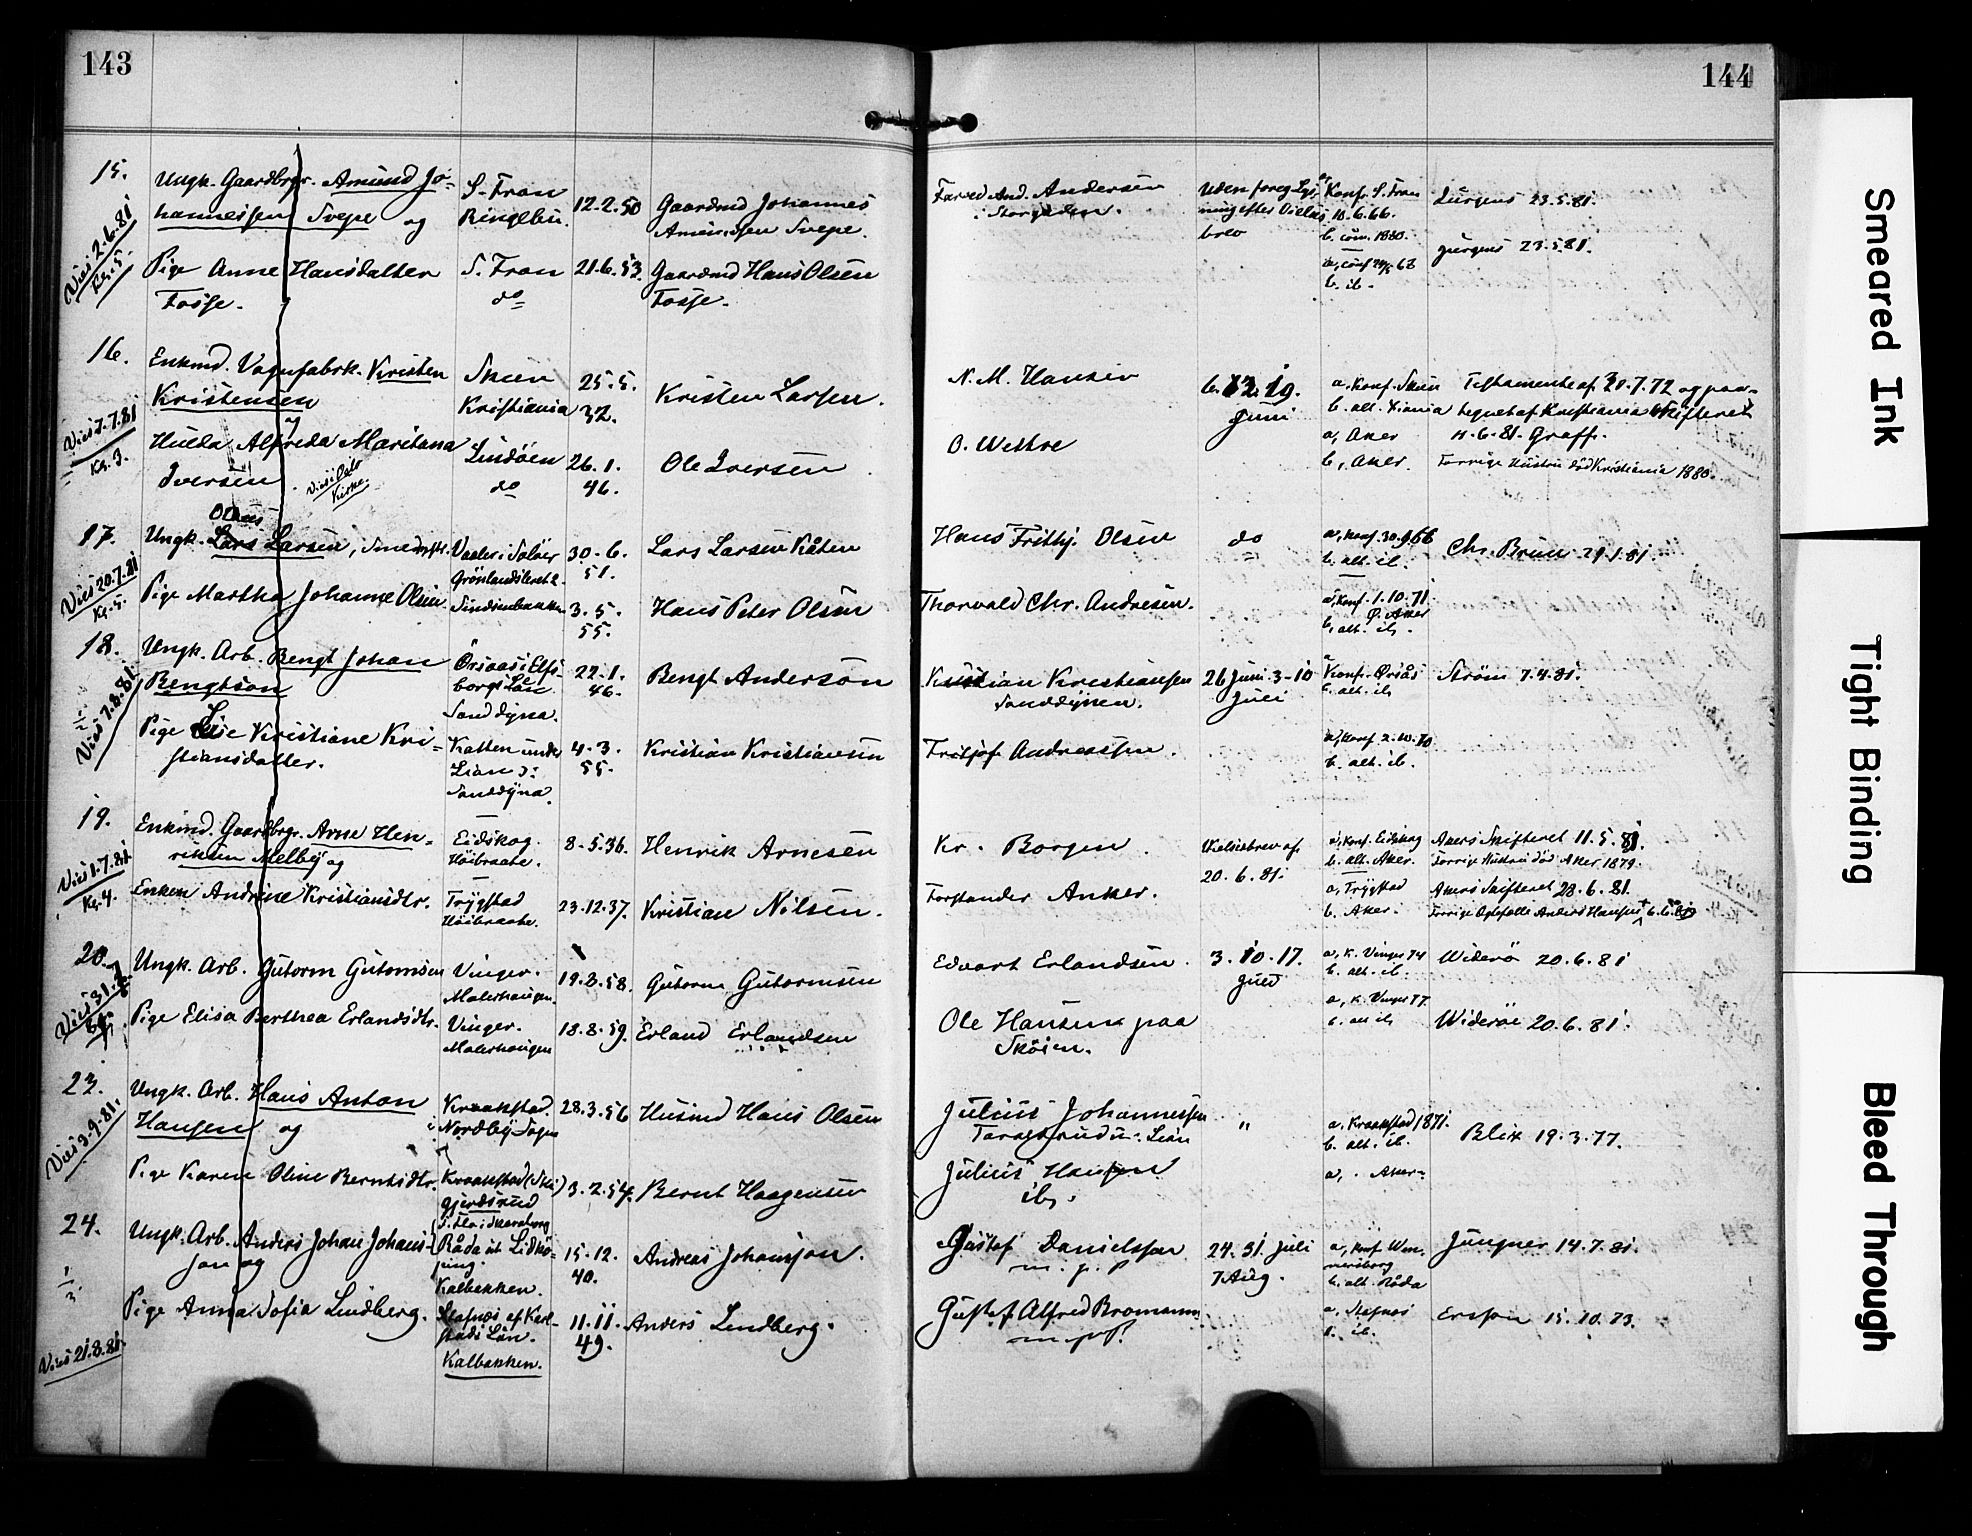 143
15.
Viet 2.6.81
Kg. 5.
Ungk. Gaardbrgr. Amund Jo-
hannessen Svepe og
S. Fron
Ringebu.
12.2.50
Gaardmd Johannes
Amundsen Svepe.
Pige Anne Hansdatter
Fosse.
S. Fron
do
21.6.53.
Gaardmd Hans Olsen
Fosse.
16.
Viet 7.7.81
Kg. 3.
Enkmd. Vognfabrk. Kristen
Kristensen
Skien
Kristiania
25.5.
32.
Kristen Larsen.
Hulda Alfreda Mariana
Iversen.
Viet i Oslo
Kirke.
Lindöen
do
26.1.
46.
Ole Iversen
17.
Viet 20.7.81
Kg. 5.
Olaus
Ungk. Lars Larsen, Smed
Vaaler i Solöer
Grönlandsleret 2.
30.6.
51.
Lars Larsen Kåten
Pige Martha Johanne Olsen
Sindsenbakken
3.5.
55.
Hans Peter Olsen
18.
Viet 7.8.81
Ungk. Arb. Bengt Johan
Bengtson
Örsaas i Elfs-
borgs Län.
Sanddyna.
22.1.
46.
Bengt Anderson
Pige Lise Kristiane Kri-
stiansdatter.
Katten under
Lian
Sanddyna.
4.3.
55.
Kristian Kristiansen
19.
Viet 1.7.81
Kg. 4.
Enkmd. Gaardbrgr. Arne Hen-
riksen Melby og
Eidskog.
Höibraaten.
8.5.36.
Henrik Arnesen
Enken Andrine Kristiansdtr.
Trygstad
Höibraaten.
23.12.37.
Kristian Nilsen.
20.
Viet 31.7.
Ungk. Arb. Gutorm Gutormsen
Vinger.
Malerhaugen.
19.3.58.
Gutorm Gutormsen
Pige Elisa Berthea Erlandsdtr.
Vinger.
Malerhaugen
18.8.59.
Erland Erlandsen
23.
Viet 3.9.81.
Ungk. Arb. Hans Anton
Hansen og
Kraakstad.
Nordby Sogn
28.3.56
Husmd Hans Olsen
Pige Karen Oline Berntsdtr.
Kraakstad (Ski)
Gjerdsrud
3.2.54.
Bernt Haagensen
24.
Viet 21.8.81.
Ungk. Arb. Anders Johan Johans-
son og
Råda at Lidkö-
ping.
Kalbakken.
15.12.
40.
Andreas Johansson.
Pige Anna Sofia Lindberg.
Stafnäs af Karl-
stads Län.
Kalbakken.
11.11.
49.
Anders Lindberg.
144
And. Andersen
Uden foreg. Lys-
ning efter Vielses
brev
a, Konf. S. Fron
10.6.66.
b. com. 1880.
Jürgens 23.5.81.
Jürgens 23.5.81.
b. ib.
N. M. Hansen
O. Wethre
6. 12. 19.
Juni
a, Konf. Skien
b. alt. Xiania
Testamente af 20.7.72 og paa-
tegnet af Kristiania Skifteret
a, Aker
b, Aker.
11.6.81. Graff.
Forrige Hustru död Kristiania 1880.
Hans Frithj. Olsen
do
a, Konf. 30.9.66
b. alt. ib.
Chr. Bruun 29.1.81.
Thorvald Chr. Andresen.
a, Konf. 1.10.71.
Ö. Aker
b, alt. ib.
Kristian Kristiansen
Sanddynen.
26 Juni 3-10
Juli
a
Konf. Örsås
b. alt. ib
Ström 7.4.81.
Fritjof Andreassen.
a, Konf. 2.10.70
b. alt. ib.
Kr. Borgen
Vielsesbrev af
20.6.81.
a, Konf. Eidskog
b. alt. Aker.
Akers Skifteret 11.5.81.
Forrige Hustru död Aker 1879.
Forstander Anker.
a, Trygstad
b. Aker.
Akers Skifteret 28.6.81.
Forrige Ægtefælle Anders Hansen
Edvart Erlandsen
3. 10. 17.
Juli
a, K. Vinger 74
b. alt. ib.
Wideröe 20.6.81
Ole Hansen paa
Skøien.
a, K. Vinger 77.
b. alt ib
Wideröe 20.6.81.
Julius Johannessen
"
a, Kraakstad 1871.
b. alt. ib.
Blix 19.3.77.
Julius Hansen
ib.
a, Aker
Gustaf Danielsson
m. p. p
24. 31. Juli
7 Aug.
a, Konf. Wen-
nersborg
b. alt. Råda
Jungner 14.7.81.
Gustaf Alfred Bromann
m. p. p.
a, Stafnäs
b. ib.
Ersson 15.10.73.
Smeared Ink
Tight Binding
Bleed Through